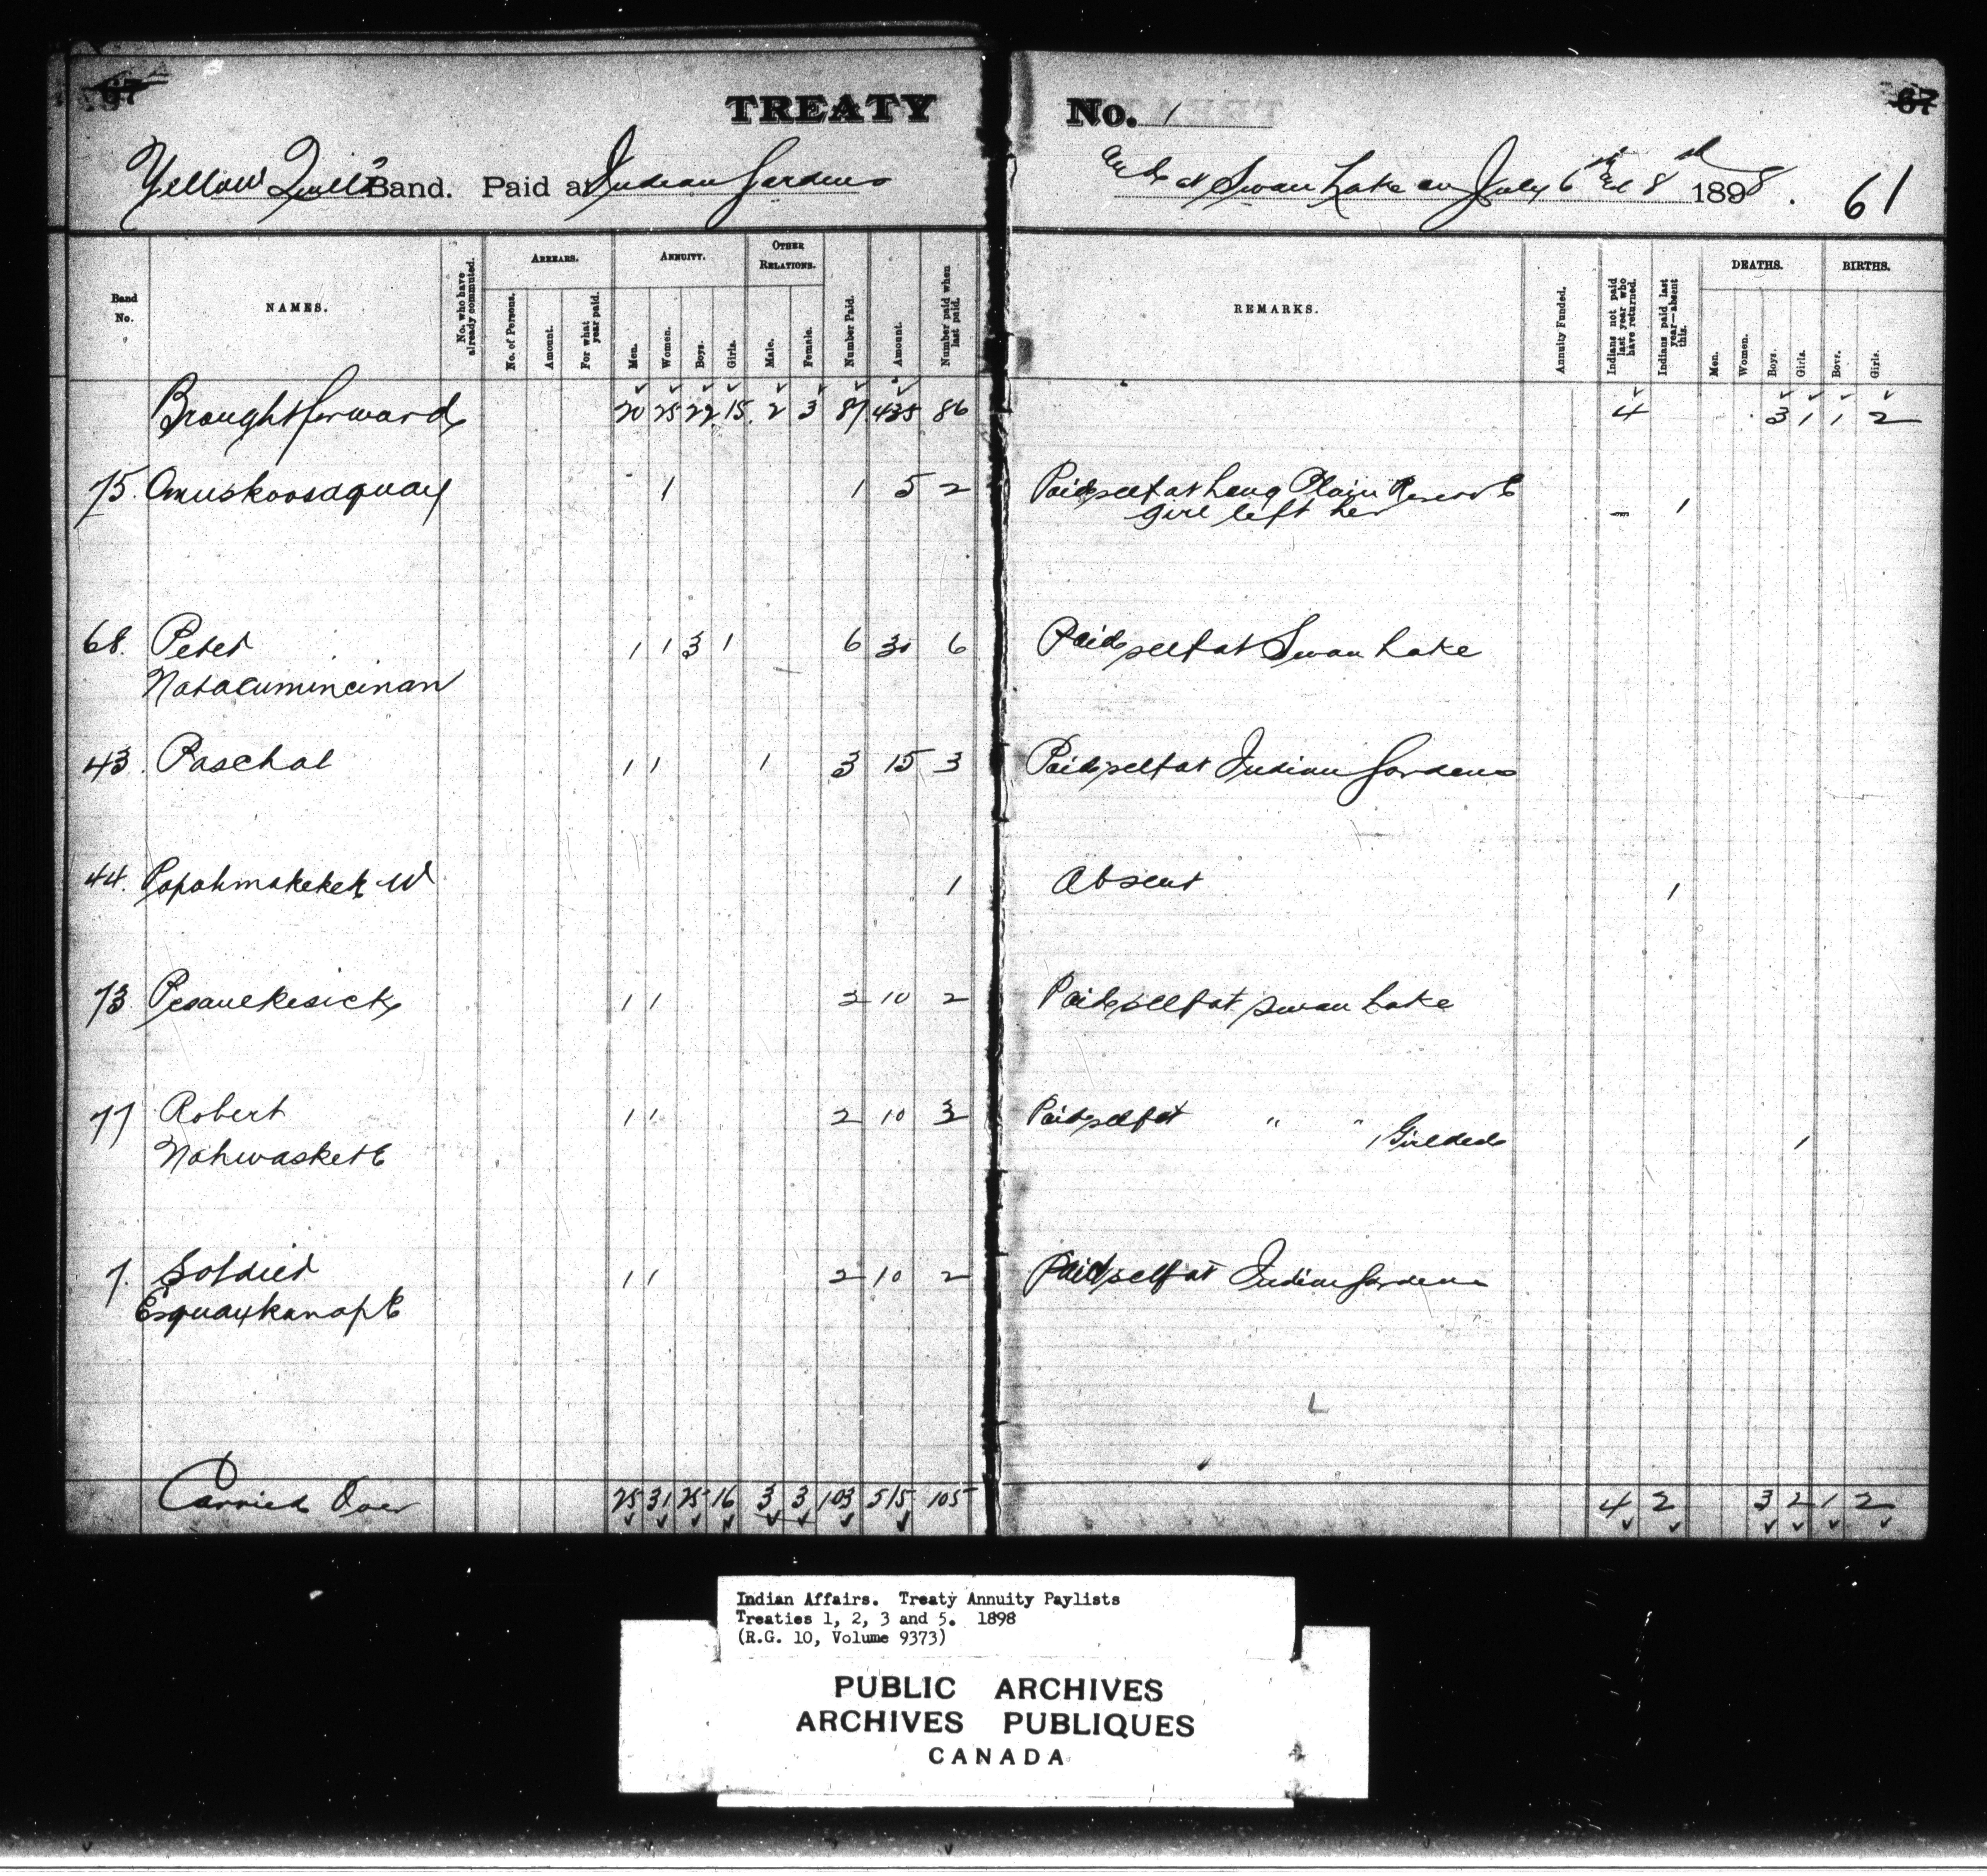 67
TREATY No. 1
67
Yellow Quill's Band. Paid at Indian Gardens and at Swan Lake on July 6th and 8th 1898.
61
Band No.
NAMES.
No. who have already commuted.
ARREARS.
No. of Persons.
Amount.
For what year paid.
ANNUITY.
Men.
Women.
Boys.
Girls.
OTHER RELATIONS.
Male.
Female.
Number Paid.
Amount.
Number paid when last paid.
REMARKS.
Annuity Funded.
Indians not paid last year who have returned.
Indians paid last year—absent this.
DEATHS.
Men.
Women.
Boys.
Girls.
BIRTHS.
Boys.
Girls.
Brought forward 20 25 22 15 2 3 87 435 86 4 3 1 1 2
75. Omuskoosaquay 1 1 5 2 Paid self at Long Plain Reserve 1
girl left her
68. Peter 1 1 3 1 6 30 6 Paid self at Swan Lake
Natacumincinan
43. Paschal 1 1 1 3 15 3 Paid self at Indian Gardens
44. Papahmakekek W 1 Absent 1
73. Pesauekesick 1 1 2 10 2 Paid self at Swan Lake
77 Robert 1 1 2 10 3 Paid self at " " 1 Girl died 1
Nahwaskete
7. Soldier 1 1 2 10 2 Paid self at Indian Gardens
Esquaykanape
Carried Over 25 31 25 16 3 3 103 515 105 4 2 3 2 1 2
Indian Affairs. Treaty Annuity Paylists
Treaties 1, 2, 3 and 5. 1898
(R.G. 10, Volume 9373)
PUBLIC ARCHIVES
ARCHIVES PUBLIQUES
CANADA